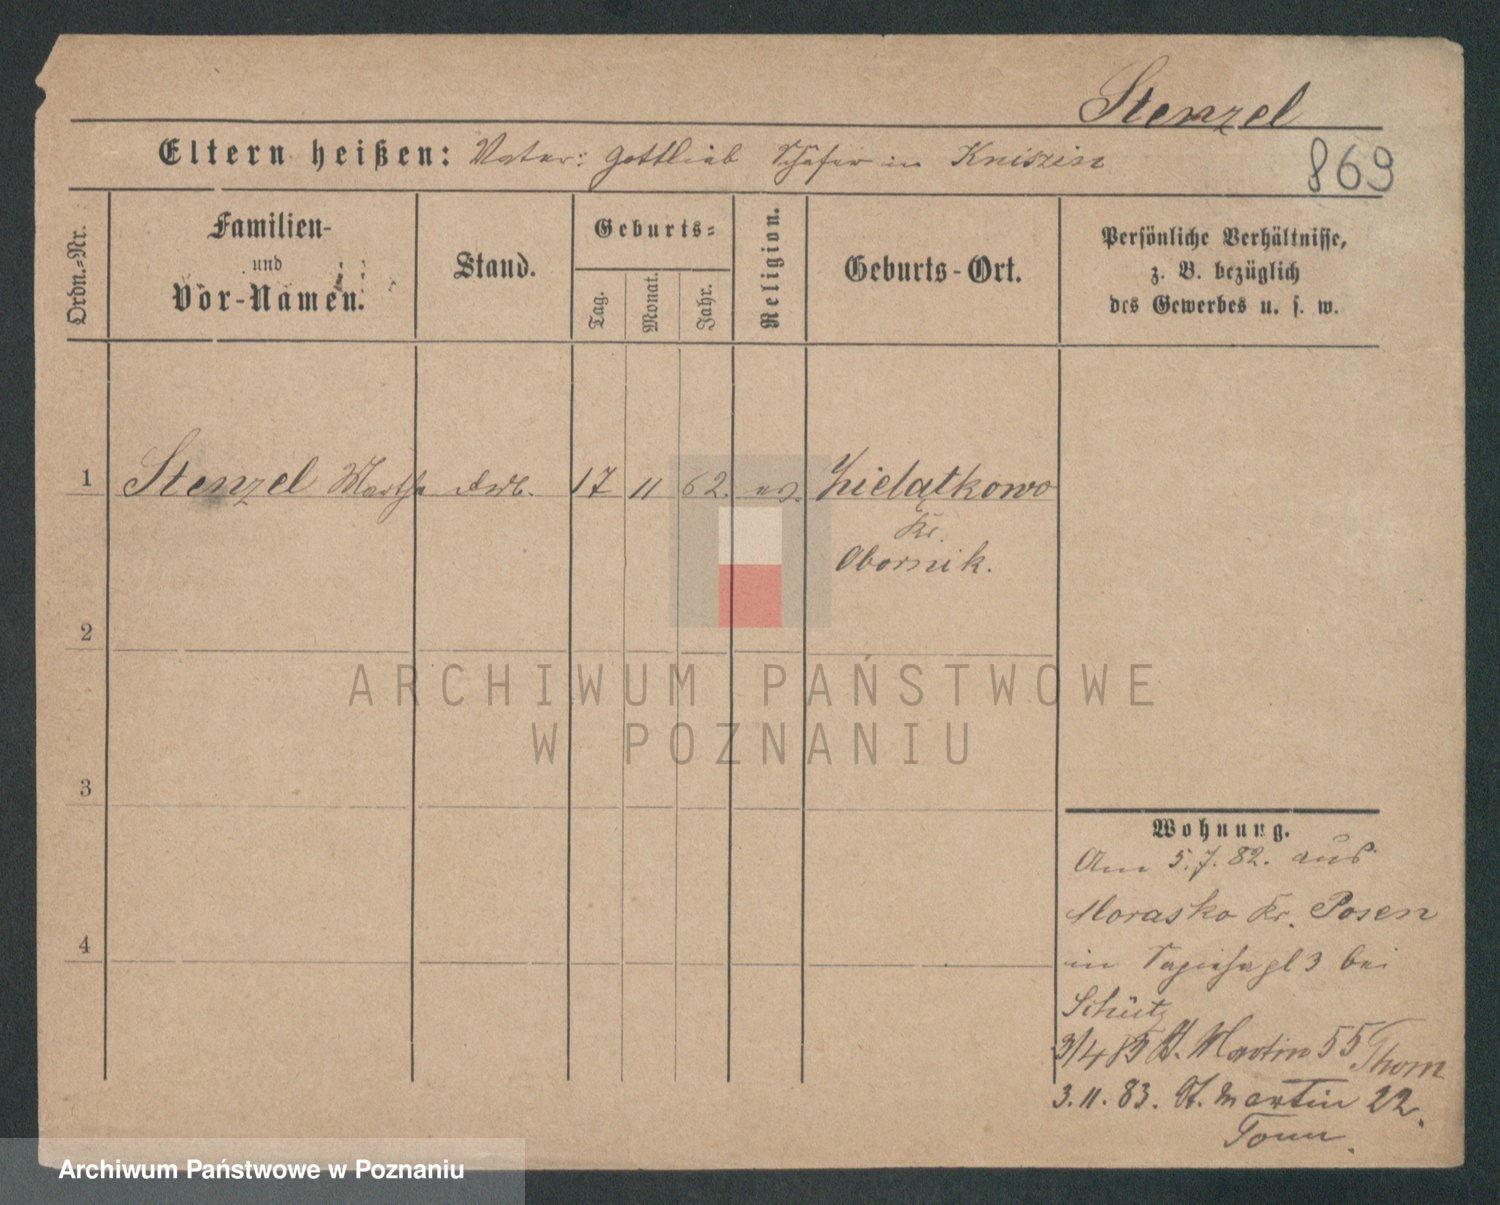 Stenzel
Eltern heißen: Vater: Gottlieb Schäfer in Kniszin
869
Ordn.-Nr.
Familien-
und
Vor-Namen.
Stand.
Geburts-
Tag.
Monat.
Jahr.
Religion.
Geburts-Ort.
Persönliche Verhältnisse,
z. B. bezüglich
des Gewerbes u. s. w.
1 Stenzel Martha 17 11 62. ev. Zielątkowo
Kr.
Obornik.
2
3
4
Wohnung.
Am 5.7.82. aus
Morasko Kr. Posen
in Sapiehapl 3 bei
Schütz
3/4 85 St. Martin 55 Thom
3.11.83. St. Martin 22.
ARCHIWUM PAŃSTWOWE
W POZNANIU
Archiwum Państwowe w Poznaniu